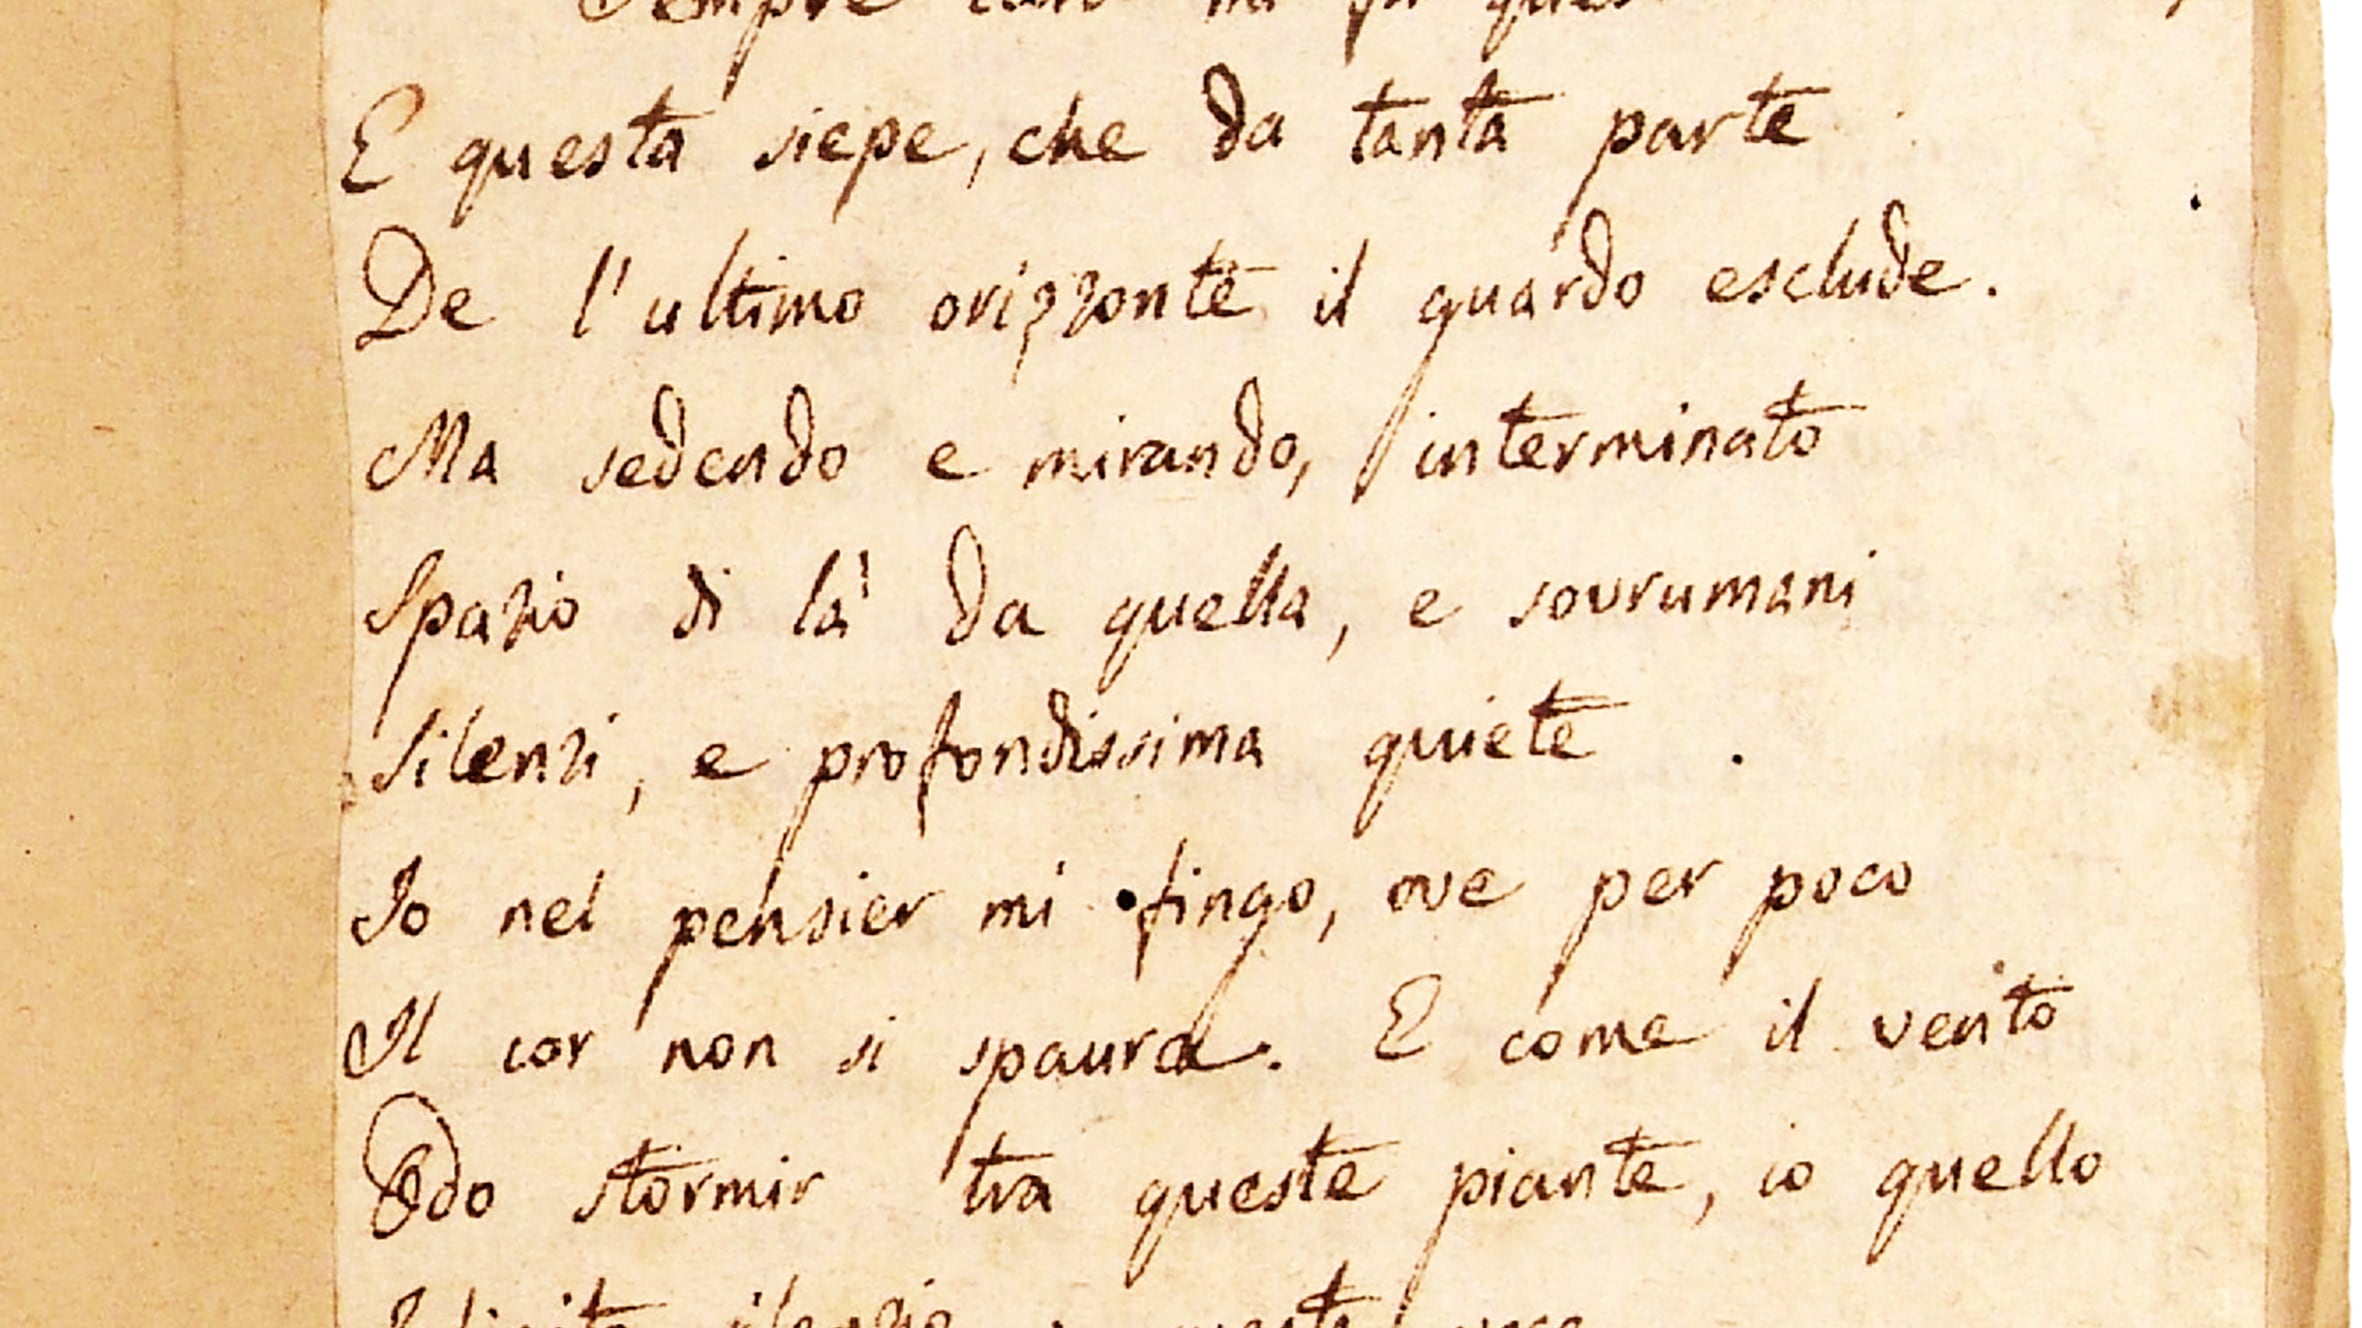 Sempre caro mi fu
E questa siepe, che da tanta parte
De l'ultimo orizzonte il guardo esclude.
Ma sedendo e mirando, interminato
Spazio di là da quella, e sovrumani
Silenzi, e profondissima quiete .
Io nel pensier mi fingo, ove per poco
Il cor non si spaura. E come il vento
Odo stormir tra queste piante, io quello